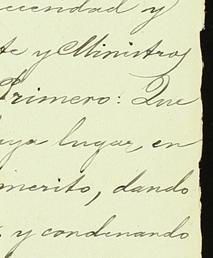 cuendad y
te y Ministros
Primero: Que
haya lugar, en
merito, dando
y condenando